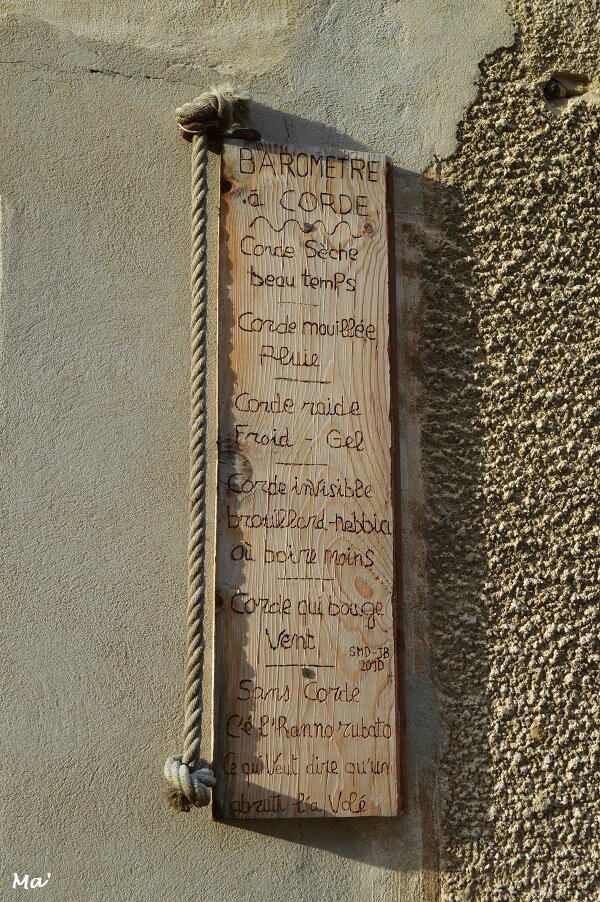 BAROMETRE
à CORDE
Corde Sèche
beau temPs
Corde mouillée
Pluie
Corde raide
Froid - Gel
Corde inVisible
brouillard-nebbia
où boire moins
Corde qui bouge
Vent
SMD-JB
2010
Sans Corde
C'é l'Hanno rubato
Ce qui Veut dire qu'un
abruti l'a Volé
Ma'